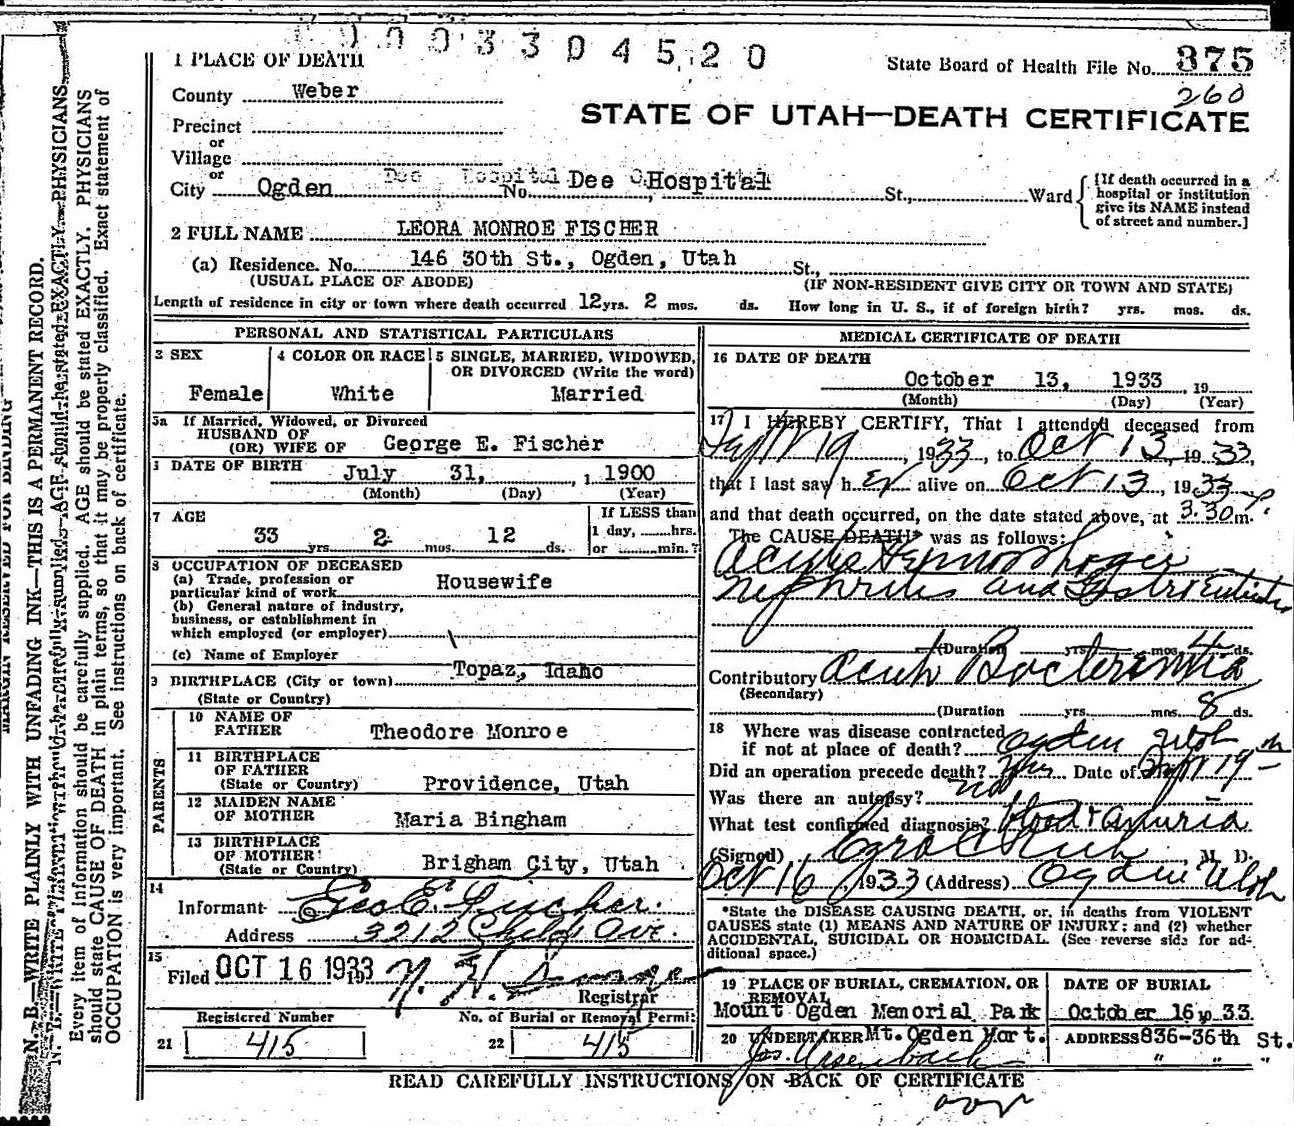 0003304520
1 PLACE OF DEATH
State Board of Health File No. 375
260
County Weber
STATE OF UTAH—DEATH CERTIFICATE
Precinct
or
Village
or
City Ogden No. Dee Hospital St., Ward
Dee Hospital
{If death occurred in a
hospital or institution
give its NAME instead
of street and number.]
2 FULL NAME LEORA MONROE FISCHER
(a) Residence. No. 146 30th St., Ogden, Utah St.,
(USUAL PLACE OF ABODE) (IF NON-RESIDENT GIVE CITY OR TOWN AND STATE)
Length of residence in city or town where death occurred 12 yrs. 2 mos. ds. How long in U. S., if of foreign birth? yrs. mos. ds.
PERSONAL AND STATISTICAL PARTICULARS
3 SEX
Female
4 COLOR OR RACE
White
5 SINGLE, MARRIED, WIDOWED,
OR DIVORCED (Write the word)
Married
5a If Married, Widowed, or Divorced
HUSBAND OF
(OR) WIFE OF George E. Fischer
DATE OF BIRTH July 31, 1900
(Month) (Day) (Year)
7 AGE
33 yrs. 2 mos. 12 ds.
If LESS than
1 day, hrs.
or min.?
8 OCCUPATION OF DECEASED
(a) Trade, profession or
particular kind of work Housewife
(b) General nature of industry,
business, or establishment in
which employed (or employer)
(c) Name of Employer
9 BIRTHPLACE (City or town) Topaz, Idaho
(State or Country)
PARENTS
10 NAME OF
FATHER Theodore Monroe
11 BIRTHPLACE
OF FATHER
(State or Country) Providence, Utah
12 MAIDEN NAME
OF MOTHER Maria Bingham
13 BIRTHPLACE
OF MOTHER
(State or Country) Brigham City, Utah
14
Informant Geo E. Fischer.
Address 3212 Childs Ave.
15
Filed OCT 16 1933
Registrar
Registered Number
21 415
No. of Burial or Removal Permit
22 415
MEDICAL CERTIFICATE OF DEATH
16 DATE OF DEATH
October 13, 1933, 19
(Month) (Day) (Year)
17 I HEREBY CERTIFY, That I attended deceased from
Sept 19, 1933, to Oct 13, 1933,
that I last saw her alive on Oct 13, 1933
and that death occurred, on the date stated above, at 3.30 P.m.
The CAUSE DEATH* was as follows:
Acute Hemorrhagic
Nephritis and Gastro Enteritis
(Duration yrs. mos. 4 ds.
Contributory Acute Bacteremia
(Secondary)
(Duration yrs. mos. 8 ds.
18 Where was disease contracted
if not at place of death? Ogden Utah
Did an operation precede death? Yes Date of Sept 19th
Was there an autopsy? no
What test confirmed diagnosis? Blood +
(Signed) Rich, M. D.
Oct 16, 1933 (Address) Ogden Utah
*State the DISEASE CAUSING DEATH, or, in deaths from VIOLENT
CAUSES state (1) MEANS AND NATURE OF INJURY; and (2) whether
ACCIDENTAL, SUICIDAL OR HOMICIDAL. (See reverse side for ad-
ditional space.)
19 PLACE OF BURIAL, CREMATION, OR
REMOVAL
Mount Ogden Memorial Park
DATE OF BURIAL
October 16, 33
20 UNDERTAKER Mt. Ogden Mort.
ADDRESS 836-36th St.
" " "
READ CAREFULLY INSTRUCTIONS ON BACK OF CERTIFICATE
over
MARGIN RESERVED FOR BINDING
N. B.—WRITE PLAINLY WITH UNFADING INK—THIS IS A PERMANENT RECORD.
Every item of information should be carefully supplied. AGE should be stated EXACTLY. PHYSICIANS
should state CAUSE OF DEATH in plain terms, so that it may be properly classified. Exact statement of
OCCUPATION is very important. See instructions on back of certificate.